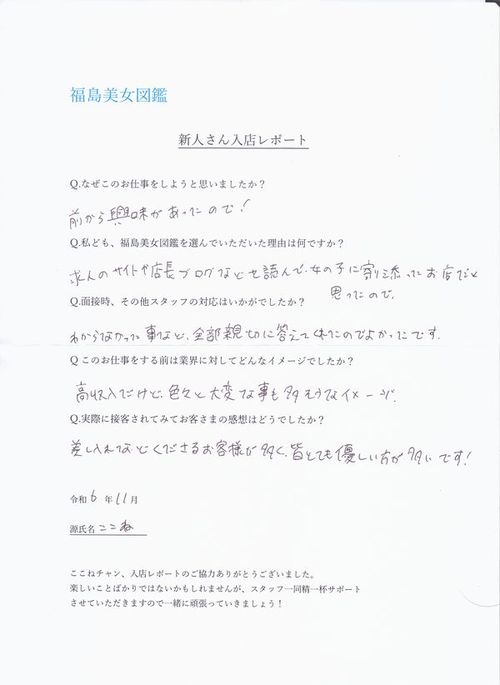 福島美女図鑑
新人さん入店レポート
Q.なぜこのお仕事をしようと思いましたか？
前から興味があったので！
Q.私ども、福島美女図鑑を選んでいただいた理由は何ですか？
求人のサイトや店長ブログなどを読んで、女の子に寄り添ったお店だと
思ったので。
Q.面接時、その他スタッフの対応はいかがでしたか？
わからなかった事など、全部親切に答えてくれたのでよかったです。
Q このお仕事をする前は業界に対してどんなイメージでしたか？
高収入だけど、色々と大変な事も多そうなイメージ。
Q.実際に接客されてみてお客さまの感想はどうでしたか？
差し入れなどくださるお客様が多く、皆とても優しい方が多いです！
令和 6 年 11 月
源氏名 ここね
ここねチャン、入店レポートのご協力ありがとうございました。
楽しいことばかりではないかもしれませんが、スタッフ一同精一杯サポート
させていただきますので一緒に頑張っていきましょう！